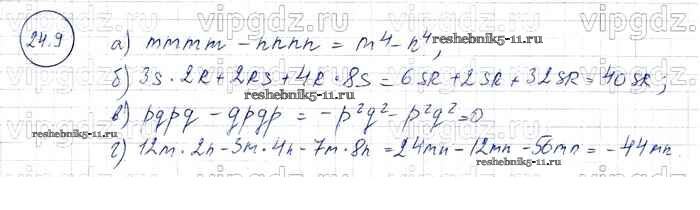 24.9
а) mmmm - nnnn = m⁴ - n⁴;
reshebnik5-11.ru
б) 3s · 2k + 2ks + 4k · 8s = 6sk + 2sk + 32sk = 40sk;
в) pqpq - qpqp = -p²q² - p²q² = 0
reshebnik5-11.ru
г) 12m · 2n - 3m · 4n - 7m · 8n = 24mn - 12mn - 56mn = -44mn.
reshebnik5-11.ru
vipgdz.ru